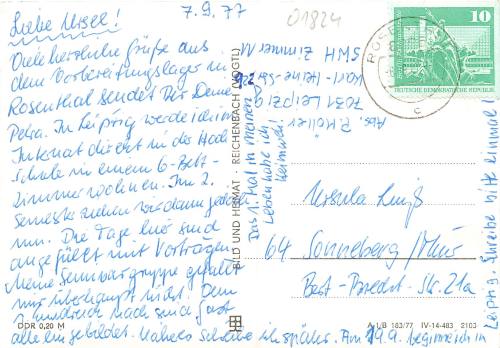 Liebe Ursel!
7.9.77
01824
Viele herzliche Grüße aus
dem Vorbereitungslager in
Rosenthal sendet Dir Deine
Petra. In Leipzig werde ich im
Internat direkt in der Hoch
schule in einem 6-Bett-
zimmer wohnen. Im 2.
Semester ziehen wir dann
um. Die Tage hier sind
angefüllt mit Vorträgen.
Meine Seminargruppe gefällt
mir überhaupt nicht. Dem
nach sind fast
alle eingebildet. Näheres schreibe ich später. Am 19.9. beginnt ich in
Leipzig. Schreibe bitte einmal!
Das 1. Mal in meinem
Leben habe ich
Heimweh!
Abs. P. Möller
7031 Leipzig
Karl-Heine-Str.
Zimmer
BILD UND HEIMAT · REICHENBACH (VOGTL)
10
DEUTSCHE DEMOKRATISCHE REPUBLIK
c
Ursula
64 Sonneberg/Thür
Bert-Brecht-Str. 21a
DDR 0,20 M
A UB 183/77 IV-14-483 2103